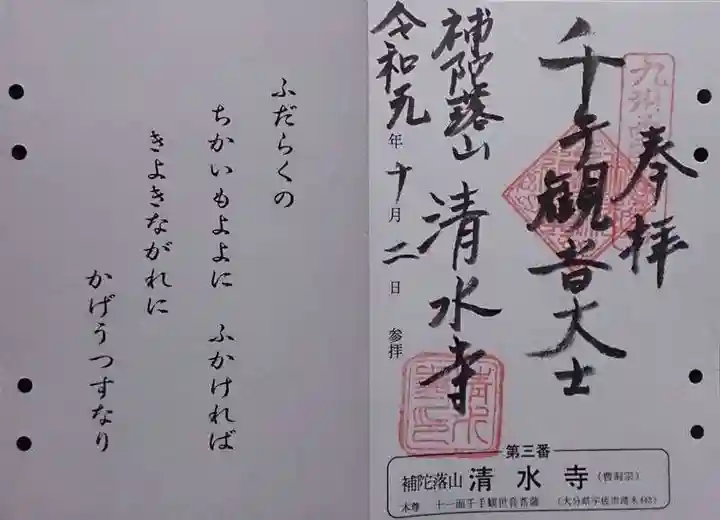 奉拝
千手観音大士
補陀落山 清水寺
令和元年十月二日参拝
清水
第三番
補陀落山 清水寺 (曹洞宗)
本尊 十一面千手観世音菩薩
ふだらくの
ちかいもよよに ふかければ
きよきながれに
かげうつすなり